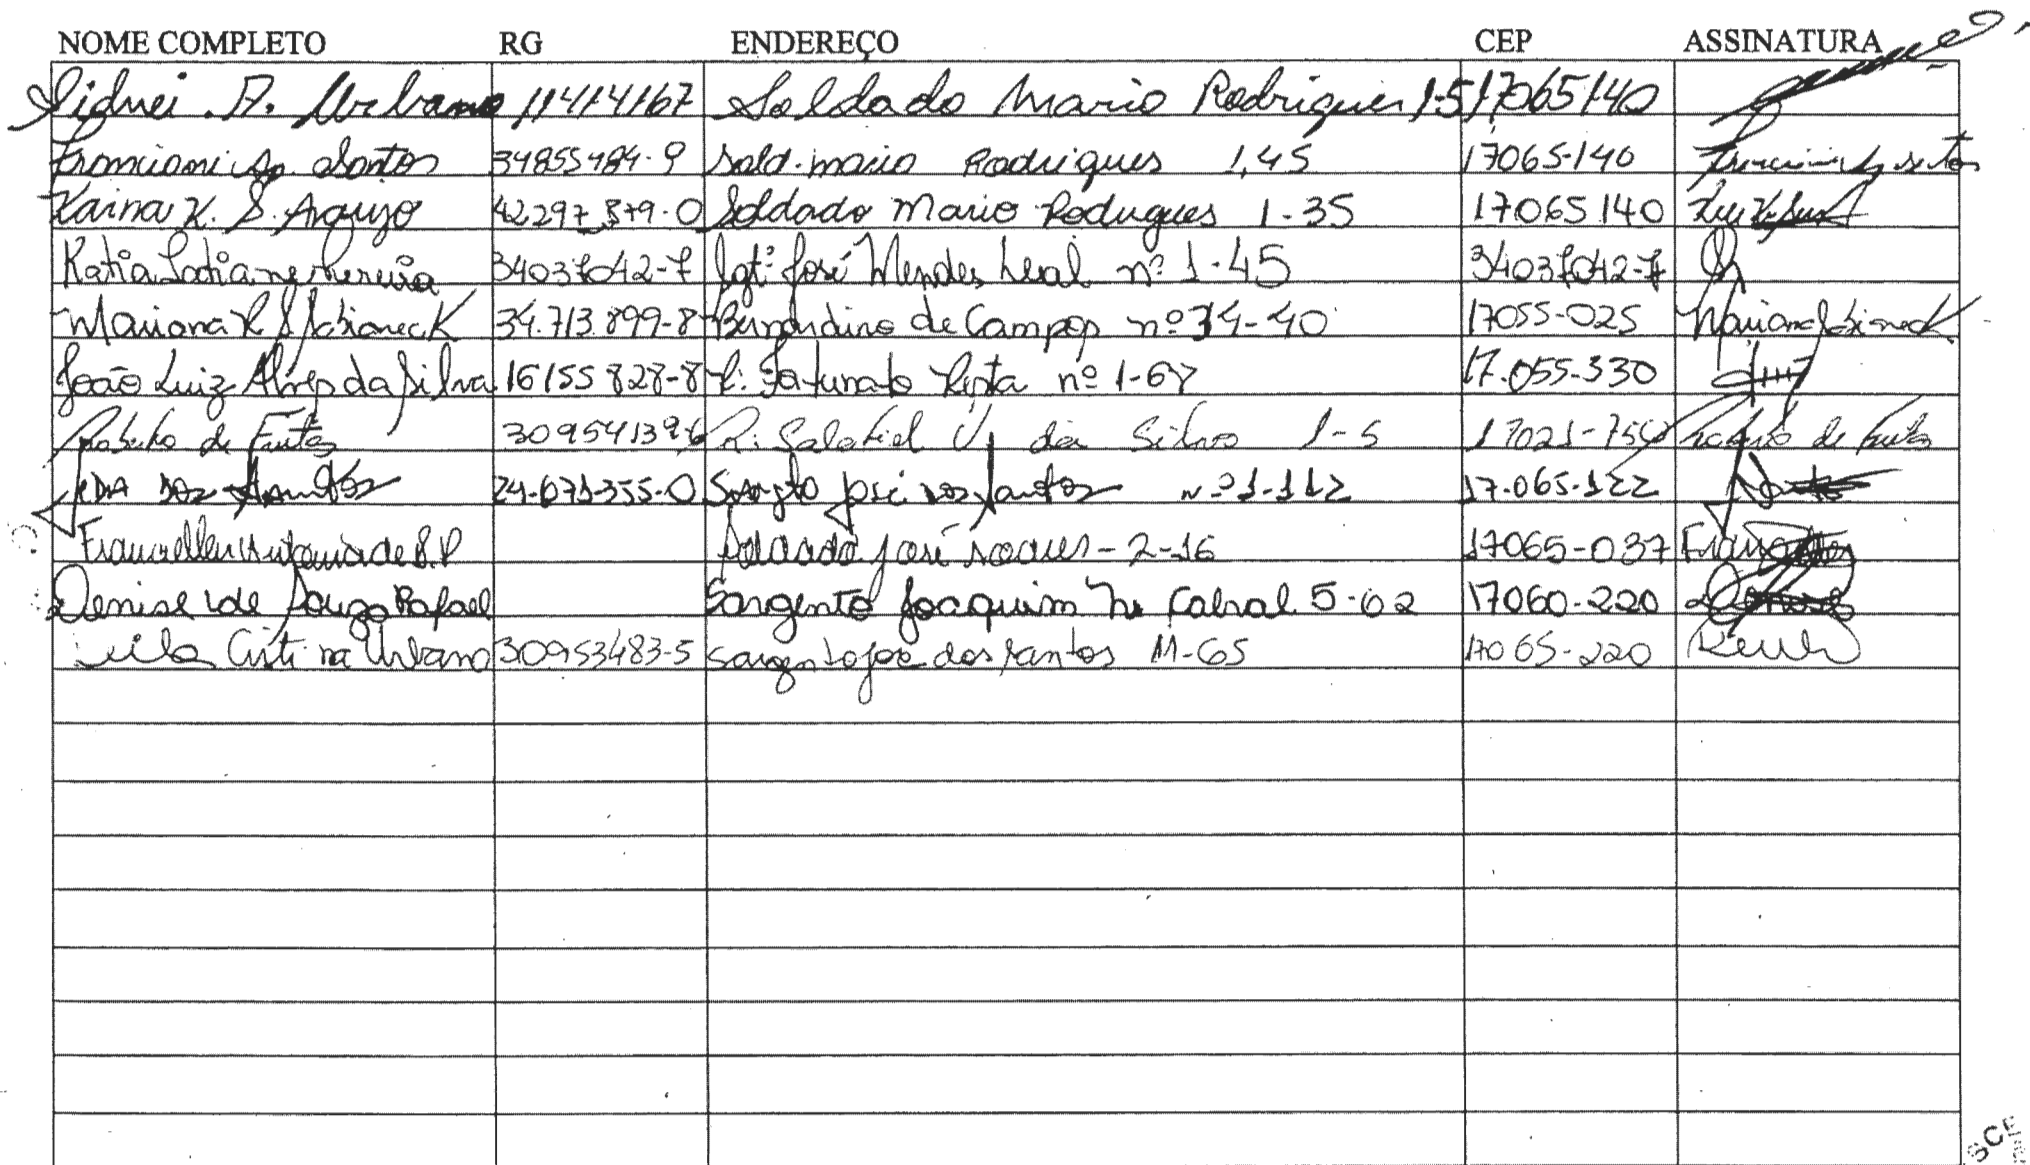 NOME COMPLETO RG ENDEREÇO CEP ASSINATURA
Sidnei A. Urbano 11414167 Soldado Mario Rodrigues 1-5 17065140
Santos 34855484-9 Sold. mario Rodrigues 1,45 17065-140
Karina K. S. Araujo 42297879-0 Soldado Mario Rodrigues 1-35 17065140
Katia Pereira 34037042-7 Sgtº José Mendes Leal nº 1-45 34037042-7
Mariana R S 34.713.899-8 Bernardino de Campos nº 14-40 17055-025 Mariana
João Luiz Alves da Silva 16155828-8 R: Fortunato Resta nº 1-67 17.055-330
Roberto de Freitas R: Salatiel da Silva 1-5 Roberto de Freitas
dos Santos 24-671-355-0 José dos Santos nº 1-112 17.065-122
Antonia de S.P Soldado José Soares - 2-16 17065-037
Denise de Souza Rafael Sargento Joaquim Cabral 5-62 17060-220
Leila Cristina Urbano 30953483-5 Sargento José dos Santos 11-65 17065-220
SCE